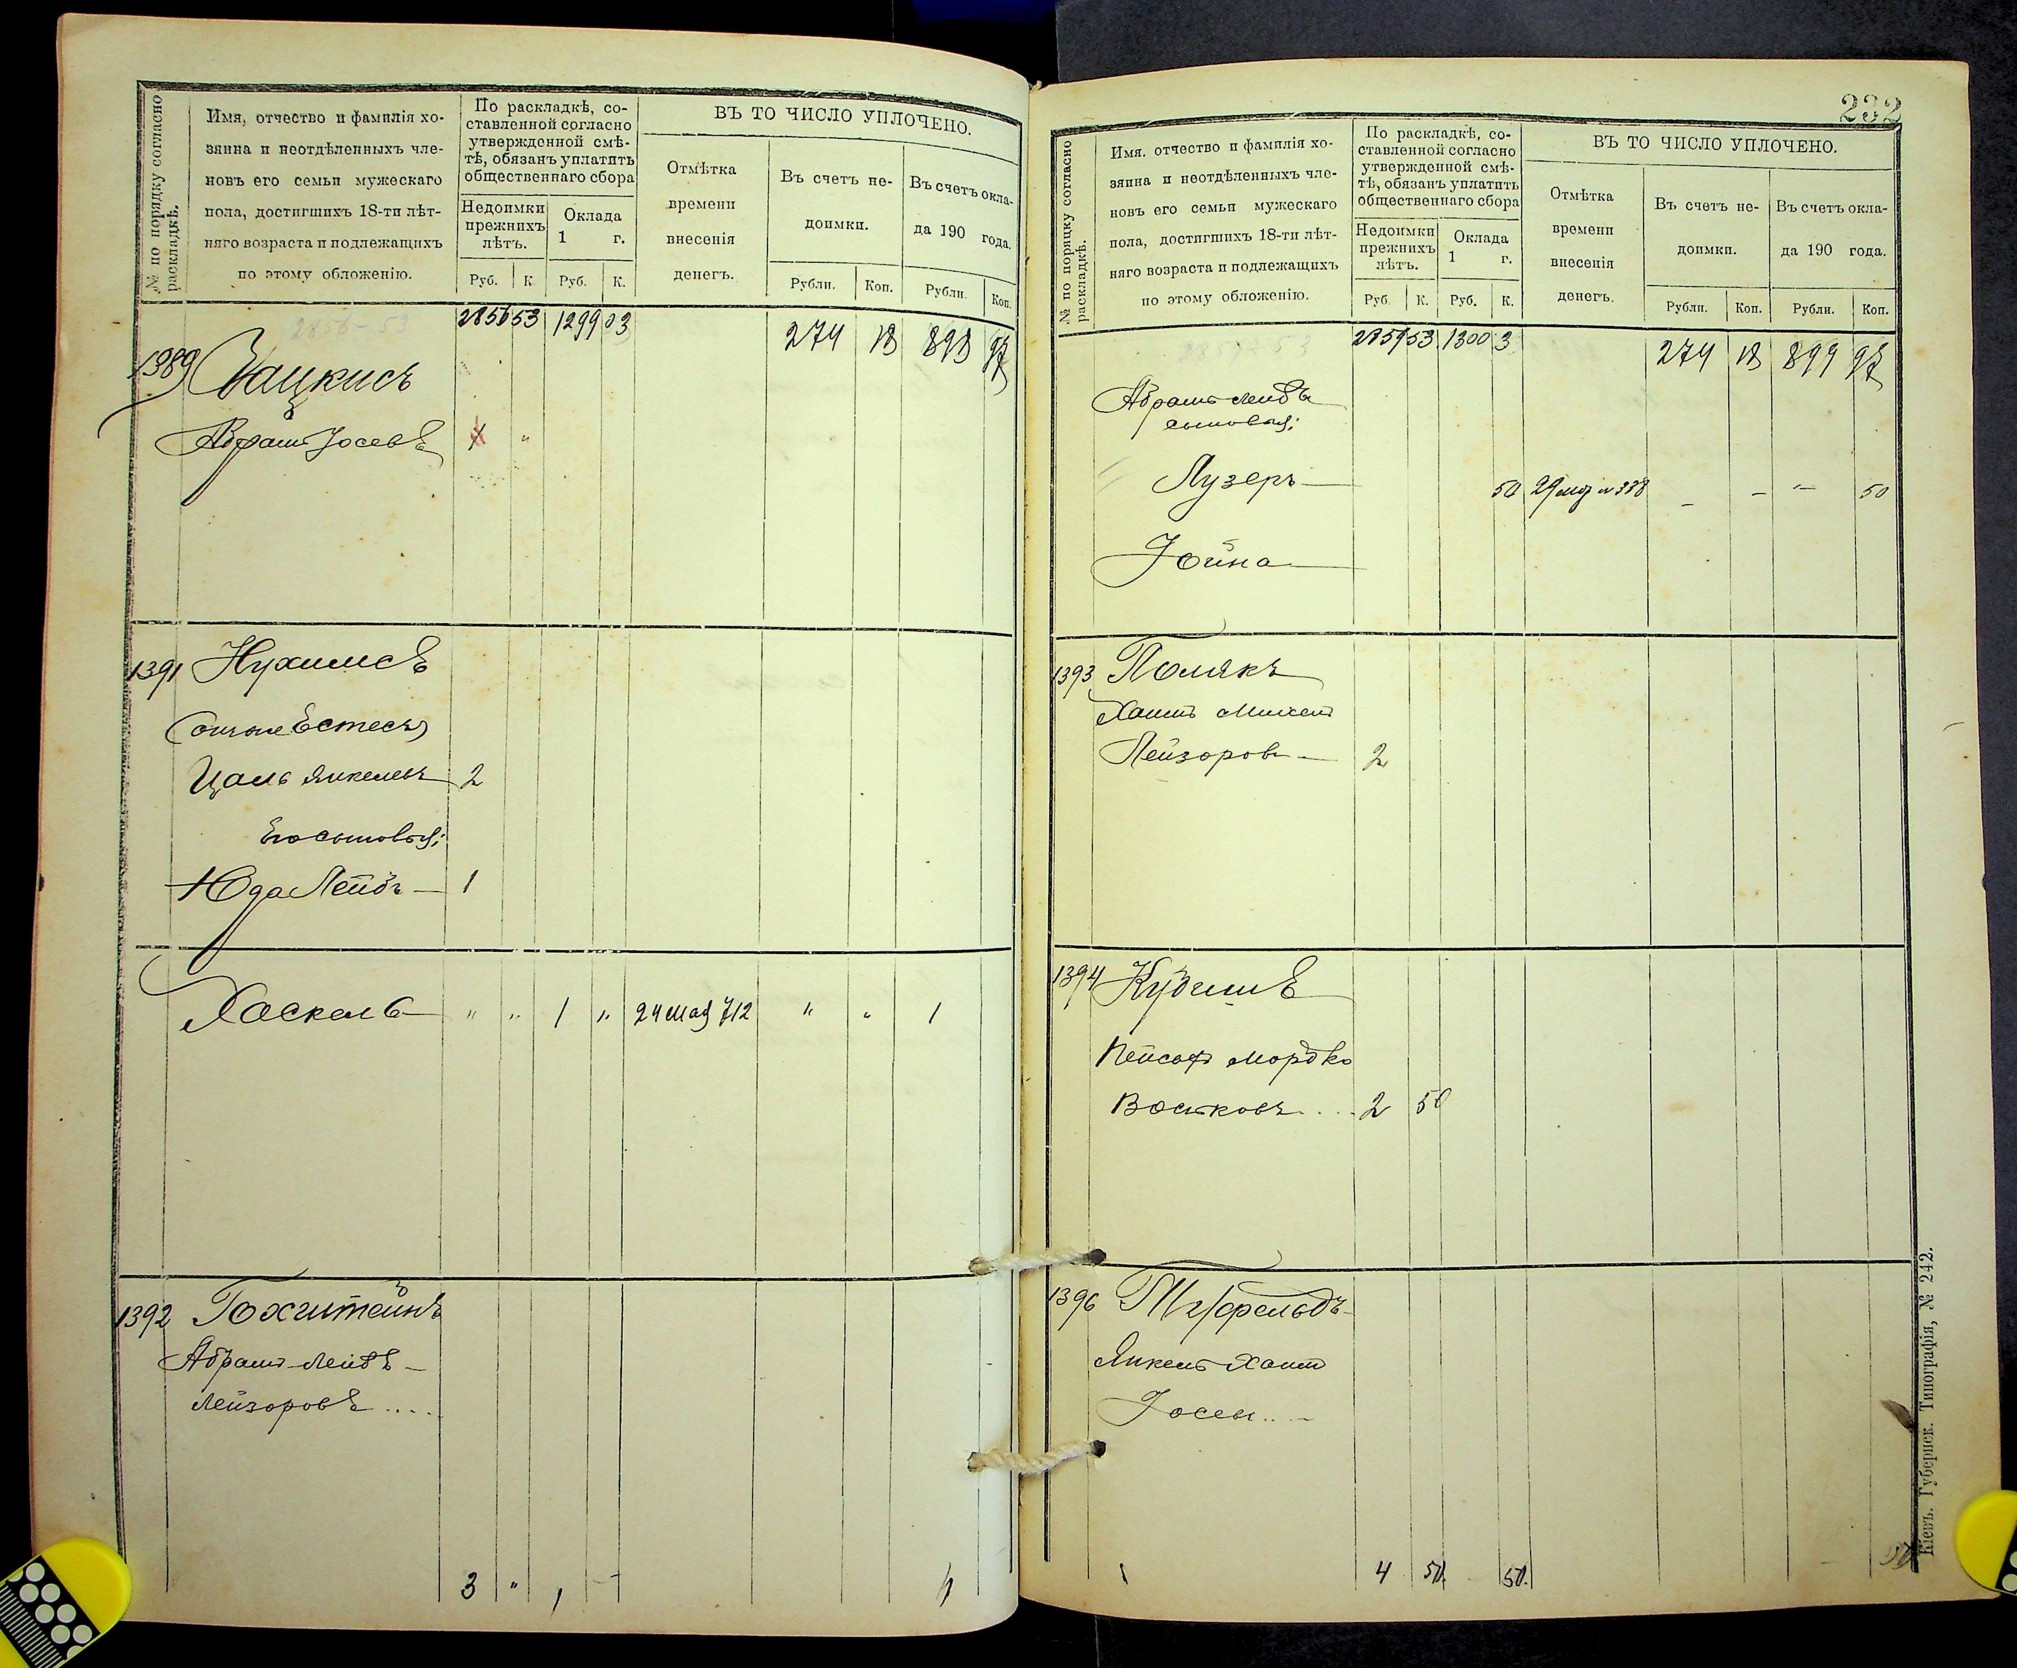 № по порядку согласно раскладкѣ.
Имя, отчество и фамилія хо-
зяина и неотдѣленныхъ чле-
новъ его семьи мужескаго
пола, достигшихъ 18-ти лѣт-
няго возраста и подлежащихъ
по этому обложенію.
По раскладкѣ, со-
ставленной согласно
утвержденной смѣ-
тѣ, обязанъ уплатить
общественнаго сбора
Недоимки
прежнихъ
лѣтъ.
Оклада
1 г.
Руб. К. Руб. К.
ВЪ ТО ЧИСЛО УПЛОЧЕНО.
Отмѣтка
времени
внесенія
денегъ.
Въ счетъ не-
доимки.
Въ счетъ окла-
да 190 года.
Рубли. Коп. Рубли. Коп.
2856-53 2856 53 1299 03 274 18 898 97
1389 Зацкисъ
Абрамъ Іосевъ
1391 Нухимсъ
(онъ же Естесъ)
Цаль Янкелевъ 2
Его сыновья:
Юда Лейбъ — 1
Хаскель " " 1 " 24 мая 712 " " 1
1392 Гохштейнъ
Абрамъ-Лейбъ —
Лейзоровъ ....
3 " 1 — 1
232
№ по порядку согласно раскладкѣ.
Имя. отчество и фамилія хо-
зяина и неотдѣленныхъ чле-
новъ его семьи мужескаго
пола, достигшихъ 18-ти лѣт-
няго возраста и подлежащихъ
по этому обложенію.
По раскладкѣ, со-
ставленной согласно
утвержденной смѣ-
тѣ, обязанъ уплатить
общественнаго сбора
Недоимки
прежнихъ
лѣтъ.
Оклада
1 г.
Руб. К. Руб. К.
ВЪ ТО ЧИСЛО УПЛОЧЕНО.
Отмѣтка
времени
внесенія
денегъ.
Въ счетъ не-
доимки.
Въ счетъ окла-
да 190 года.
Рубли. Коп. Рубли. Коп.
2859 53 1300 3 274 18 899 97
Абрамъ-Лейбъ
сыновья:
Лузеръ — 50 29 № 338 — — — 50
Іойна —
1393 Полякъ
Хаимъ
Лейзоровъ — 2
1394
Пейсахъ Мордко
2 50
1396
Янкель Хаим
Іосев...
4 50 50
50
Кіевъ. Губернск. Типографія, № 242.